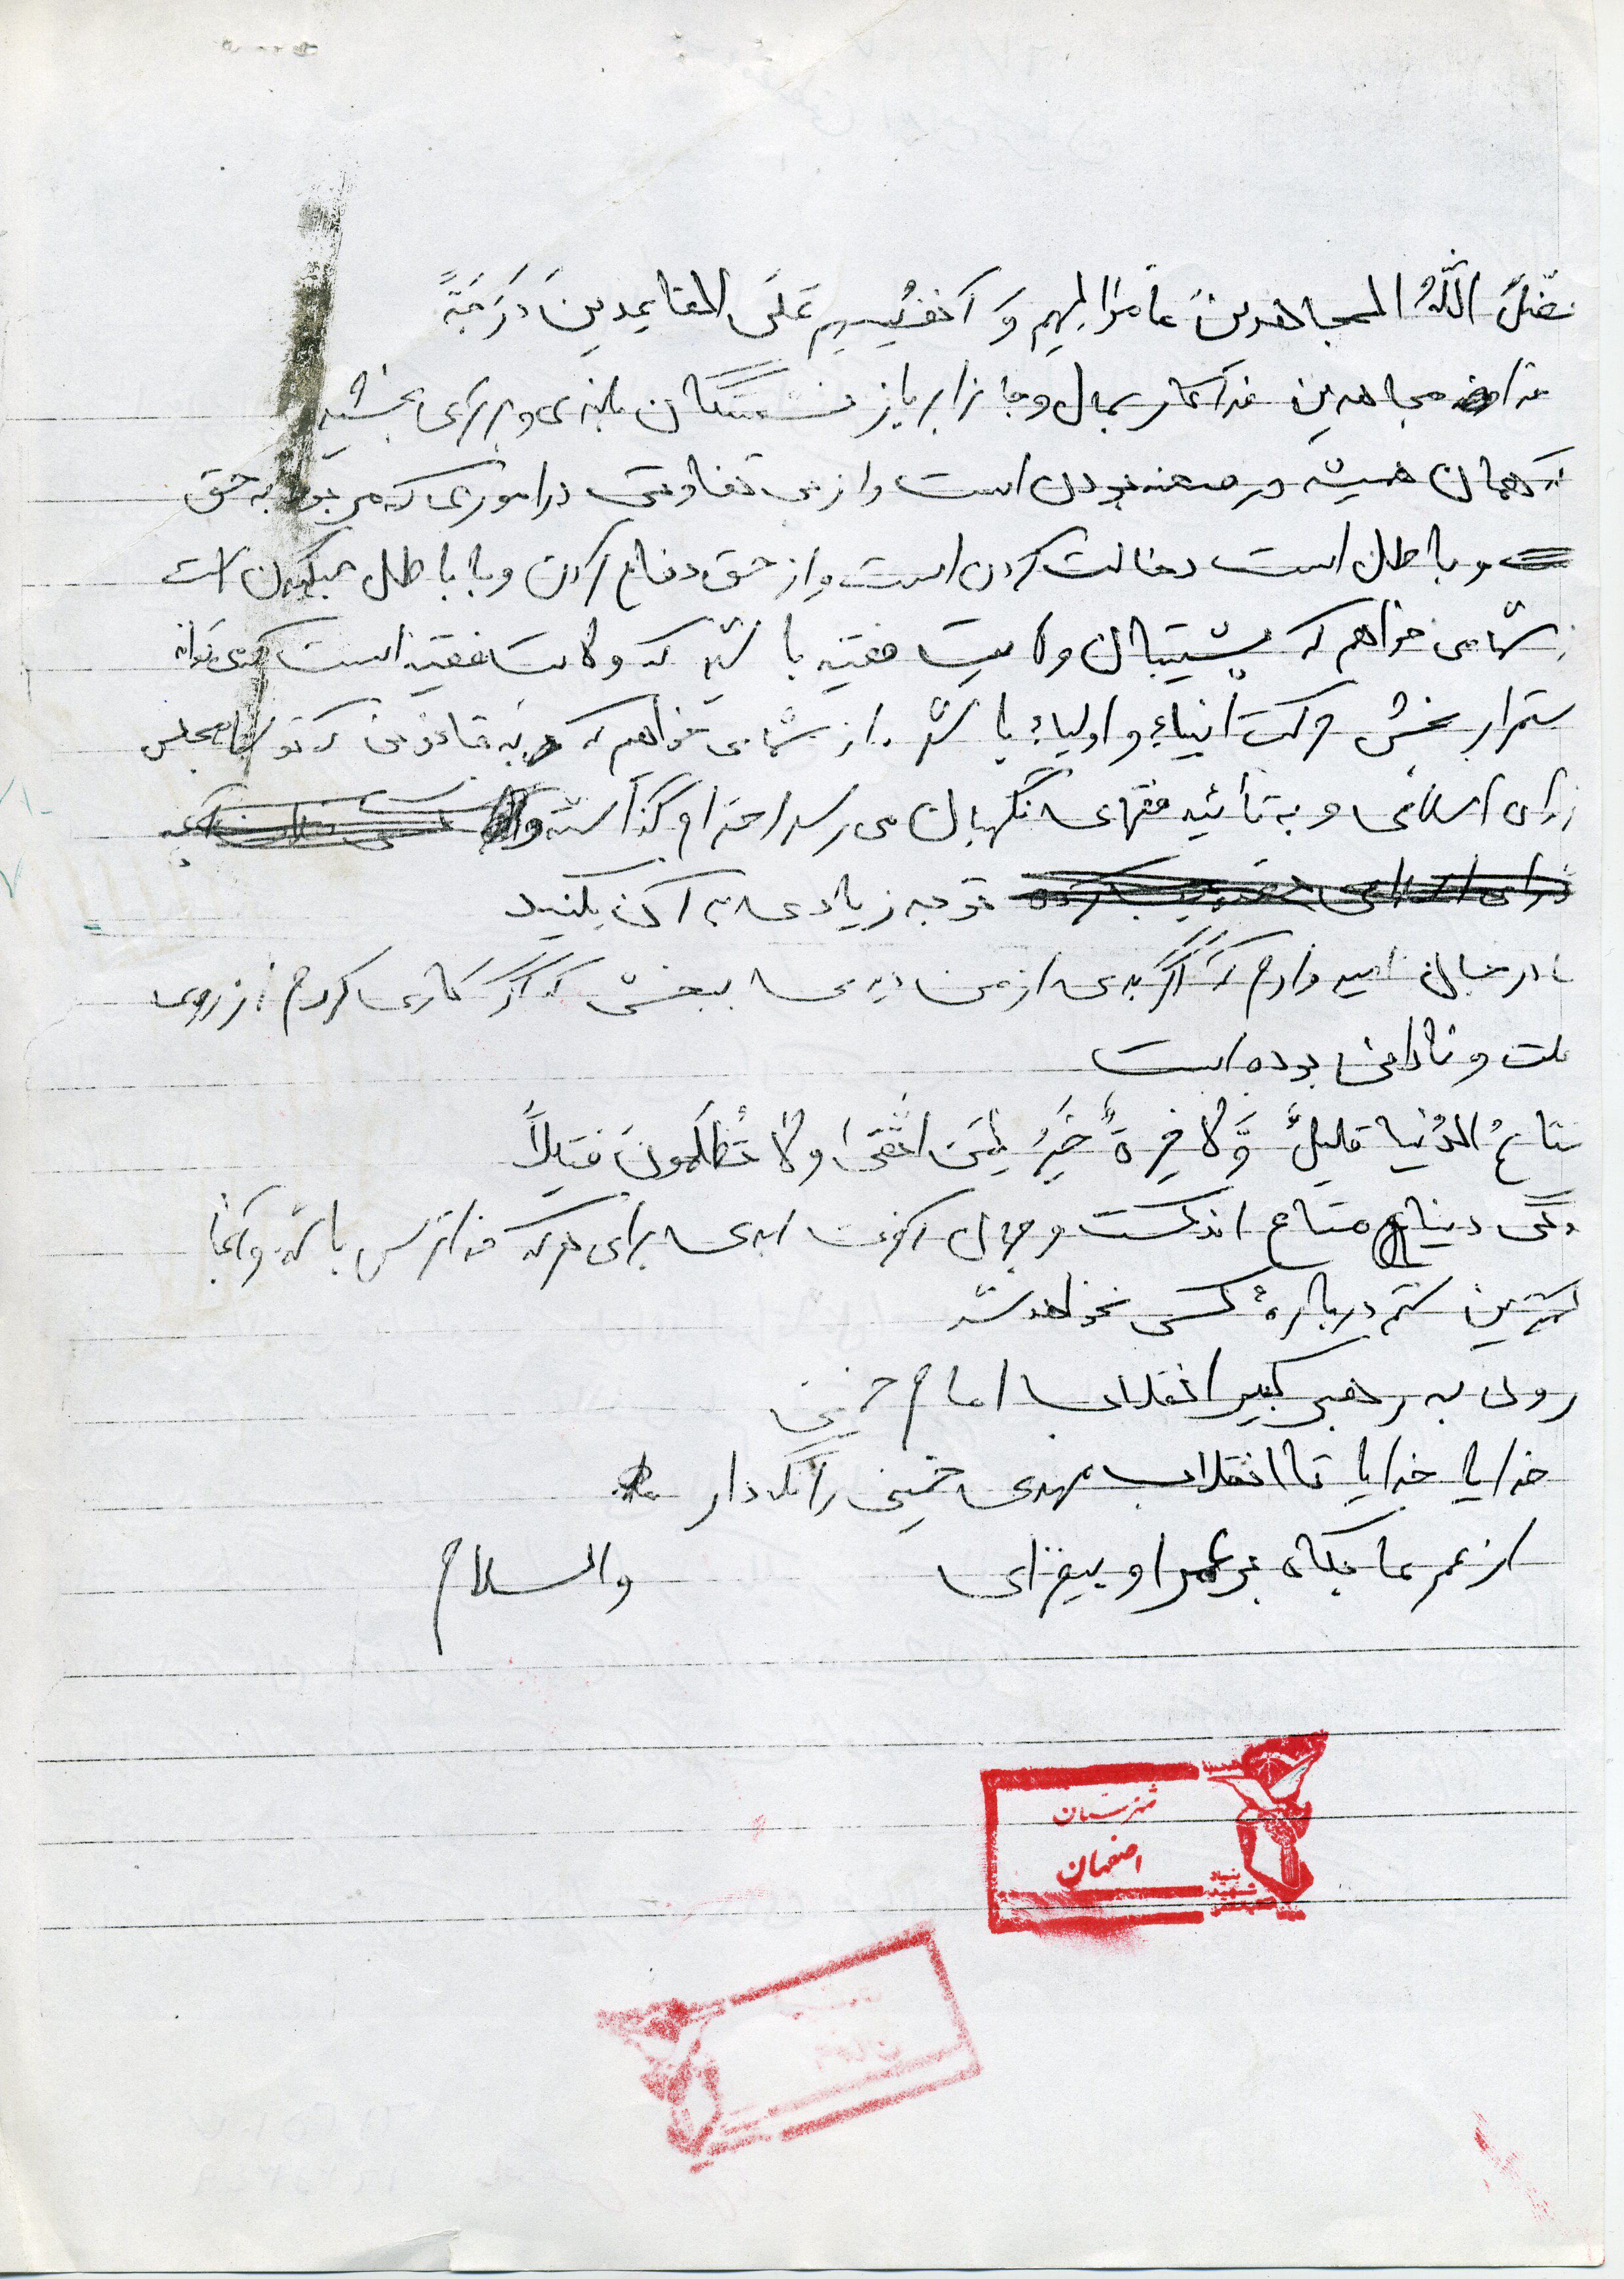 فضّلَ اللّهُ المجاهدینَ بأموالِهِم وَ اَنفُسِهِم عَلَی القاعِدینَ دَرَجَةً
خدا مجاهدین فداکار بمال و جان را بر بازنشستگان بلندی و برتری بخشیده
که همان همیشه در صحنه بودن است و از بی تفاوتی در اموری که مربوط به حق
و باطل است دخالت کردن است و از حق دفاع کردن و با باطل جنگیدن است
ز شما می خواهم که پشتیبان ولایت فقیه باشید که ولایت فقیه است که می تواند
ستمرار بخش حرکت انبیاء و اولیاء باشد . از شما می خواهم که به قانونی که توسط مجلس
ورای اسلامی و به تأئید فقهای نگهبان می رسد احترام گذاشته و
توجه زیادی به آن بکنید
مادر جان امید وارم که اگر بدی از من دیدی ببخشی که اگر کاری کردم از روی
فلت و نادانی بوده است
متاعُ الدُنیا قلیلٌ وَّ لاخِرةُ خَیرٌ لِمَن اتَّقی و لا تُظلَمونَ فتیلاً
دگی دنیا متاع اندکست و جهان آخرت ابدی برای هر که خدا ترس باشد و آنجا
کمترین ستم درباره کسی نخواهد شد
رودی به رهبر کبیر انقلاب امام خمینی
خدایا خدایا تا انقلاب مهدی خمینی را نگه دار
از عمر ما بکاه بر عمر او بیفزای والسلام
شهرستان
اصفهان
بنیاد
شهید